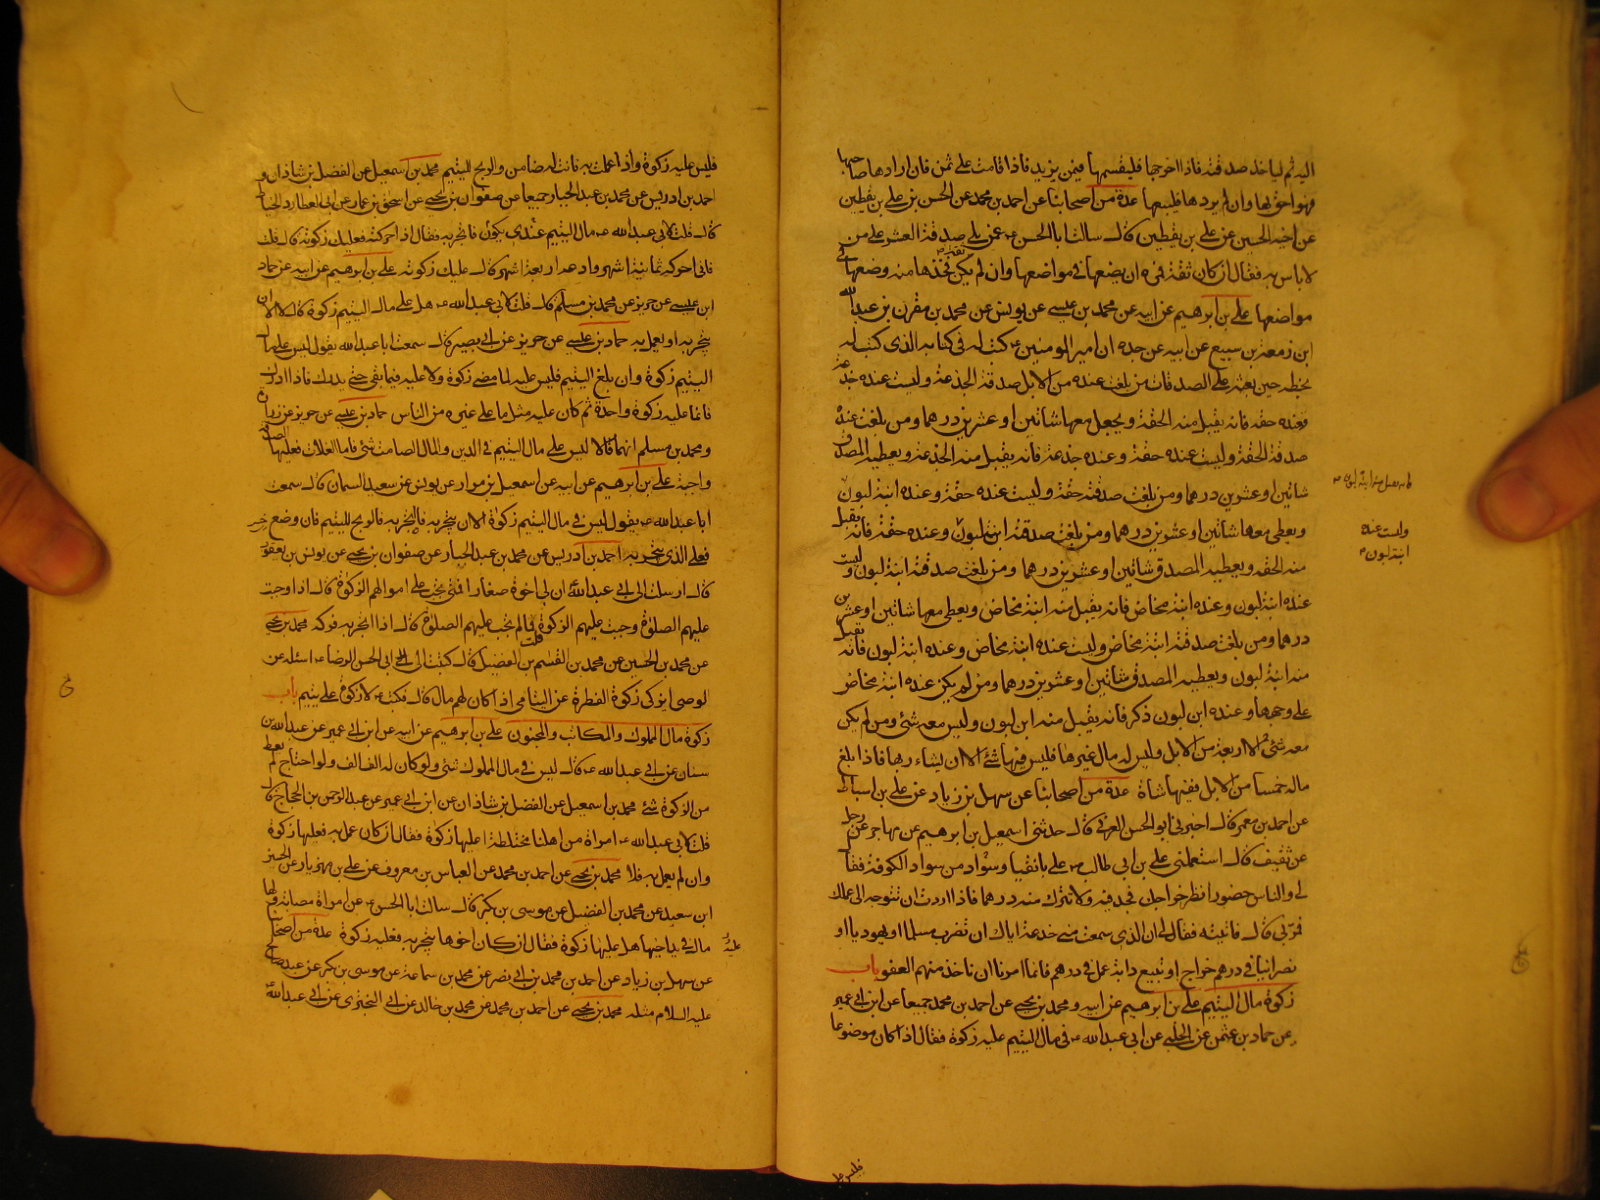 اليه ثم لياخذ صدقته فاذا اخرجها فليقسمها فيمن يزيد فاذا قامت على ثمن فان ارادها صاحبها
فهو احق بها وان لم يردها فليبعها عدة من اصحابنا عن احمد بن محمد عن الحسن بن علي بن يقطين
عن اخيه الحسين عن علي بن يقطين قال سالت ابا الحسن ع عمن يلي صدقة العشر على من
لا باس به فقال ان كان ثقة فمره ان يضعها في مواضعها وان لم يكن ثقة فخذها منه وضعها في
مواضعها علي بن ابرهيم عن ابيه عن محمد بن عيسى عن يونس عن محمد بن مقرن بن عبد الله
ابن زمعة بن سبيع عن ابيه عن جده ان امير المومنين ع كتب له في كتابه الذي كتب له
بخطه حين بعثه على الصدقات من بلغت عنده من الابل صدقة الجذعة وليست عنده جذعة
وعنده حقة فانه يقبل منه الحقة ويجعل معها شاتين او عشرين درهما ومن بلغت عنده
صدقة الحقة وليست عنده حقة وعنده جذعة فانه يقبل منه الجذعة ويعطيه المصدق
شاتين او عشرين درهما ومن بلغت صدقته حقة وليست عنده حقة وعنده ابنة لبون
فانه يقبل منه ابنة لبون
ويعطي معها شاتين او عشرين درهما ومن بلغت صدقته ابنة لبون وعنده حقة فانه يقبل
وليست عنده
ابنة لبون
منه الحقة ويعطيه المصدق شاتين او عشرين درهما ومن بلغت صدقته ابنة لبون وليست
عنده ابنة لبون وعنده ابنة مخاض فانه يقبل منه ابنة مخاض ويعطي معها شاتين او عشرين
درهما ومن بلغت صدقته ابنة مخاض وليست عنده ابنة مخاض وعنده ابنة لبون فانه يقبل
منه ابنة لبون ويعطيه المصدق شاتين او عشرين درهما ومن لم يكن عنده ابنة مخاض
على وجهها وعنده ابن لبون ذكر فانه يقبل منه ابن لبون وليس معه شئ ومن لم يكن
معه شئ الا اربعة من الابل وليس له مال غيرها فليس فيها شئ الا ان يشاء ربها فاذا بلغ
ماله خمسا من الابل ففيها شاة عدة من اصحابنا عن سهل بن زياد عن علي بن اسباط
عن احمد بن معمر قال اخبرني ابو الحسن العرني قال حدثني اسمعيل بن ابرهيم عن مهاجر عن رجل
عن ثقيف قال استعملني علي بن ابي طالب ع على بانقيا وسواد من سواد الكوفة فقال
لي والناس حضور انظر خراجك فجد فيه ولا تترك منه درهما فاذا اردت ان تتوجه الى عملك
فمر بي قال فاتيته فقال لي ان الذي سمعت مني خدعة اياك ان تضرب مسلما او يهوديا او
نصرانيا في درهم خراج او تبيع دابة عمل في درهم فانما امرنا ان ناخذ منهم العفو باب
زكوة مال اليتيم علي بن ابرهيم عن ابيه ومحمد بن يحيى عن احمد بن محمد جميعا عن ابن ابي عمير
عن حماد بن عثمن عن الحلبي عن ابي عبد الله ع في مال اليتيم عليه زكوة فقال اذا كان موضوعا
فليس عليه
فليس عليه زكوة واذا عملت به فانت له ضامن والربح لليتيم محمد بن اسمعيل عن الفضل بن شاذان و
احمد بن ادريس عن محمد بن عبد الجبار جميعا عن صفوان بن يحيى عن اسحق بن عمار عن ابي العطارد الخياط
قال قلت لابي عبد الله ع مال اليتيم عندي يكون فاتجر به فقال اذا حركته فعليك زكوته قال قلت
فاني احركه ثمانية اشهر وادعه اربعة اشهر قال عليك زكوته علي بن ابرهيم عن ابيه عن حماد
ابن عيسى عن حريز عن محمد بن مسلم قال قلت لابي عبد الله ع هل على مال اليتيم زكوة قال لا الا ان
يتجر به او يعمل به حماد بن عيسى عن حريز عن ابي بصير قال سمعت ابا عبد الله يقول ليس على مال
اليتيم زكوة وان بلغ اليتيم فليس عليه لما مضى زكوة ولا عليه فيما بقي حتى يدرك فاذا ادرك
فانما عليه زكوة واحدة ثم كان عليه مثل ما على غيره من الناس حماد بن عيسى عن حريز عن زرارة
ومحمد بن مسلم انهما قالا ليس على مال اليتيم في الدين والمال الصامت شئ فاما الغلات فعليها الصدقة
واجبة علي بن ابرهيم عن ابيه عن اسمعيل بن مرار عن يونس عن سعيد السمان قال سمعت
ابا عبد الله ع يقول ليس في مال اليتيم زكوة الا ان يتجر به فان اتجر به فالربح لليتيم فان وضع
فعلى الذي يتجر به احمد بن ادريس عن محمد بن عبد الجبار عن صفوان بن يحيى عن يونس بن يعقوب
قال ارسلت الى ابي عبد الله ان لي اخوة صغارا فمتى تجب على اموالهم الزكوة قال اذا وجبت
عليهم الصلوة وجبت عليهم الزكوة قلت فما لم تجب عليهم الصلوة قال اذا اتجر به فزكه محمد بن يحيى
عن محمد بن الحسين عن محمد بن القسم بن الفضيل قال كتبت الى ابي الحسن الرضا ع اسئله عن
الوصي ايزكي زكوة الفطرة عن اليتامى اذا كان لهم مال قال فكتب ع لا زكوة على يتيم باب
زكوة مال المملوك والمكاتب والمجنون علي بن ابرهيم عن ابيه عن ابن ابي عمير عن عبد الله بن
سنان عن ابي عبد الله ع قال ليس في مال المملوك شئ ولو كان له الف الف ولو احتاج لم يعط
من الزكوة شئ محمد بن اسمعيل عن الفضل بن شاذان عن ابن ابي عمير عن عبد الرحمن بن الحجاج قال
قلت لابي عبد الله ع امراة من اهلنا مختلطة اعليها زكوة فقال ان كان عمل به فعليها زكوة
وان لم يعمل به فلا محمد بن يحيى عن احمد بن محمد عن العباس بن معروف عن علي بن مهزيار عن الحسين
ابن سعيد عن محمد بن الفضل عن موسى بن بكر قال سالت ابا الحسن ع عن امراة مصابة ولها
مال في يد اخيها هل عليها زكوة فقال ان كان اخوها يتجر به فعليه زكوة عدة من اصحابنا
عن سهل بن زياد عن احمد بن محمد بن ابي نصر عن محمد بن سماعة عن موسى بن بكر عن عبد صالح
عليه السلام مثله محمد بن يحيى عن احمد بن محمد عن محمد بن خالد عن ابي البختري عن ابي عبد الله